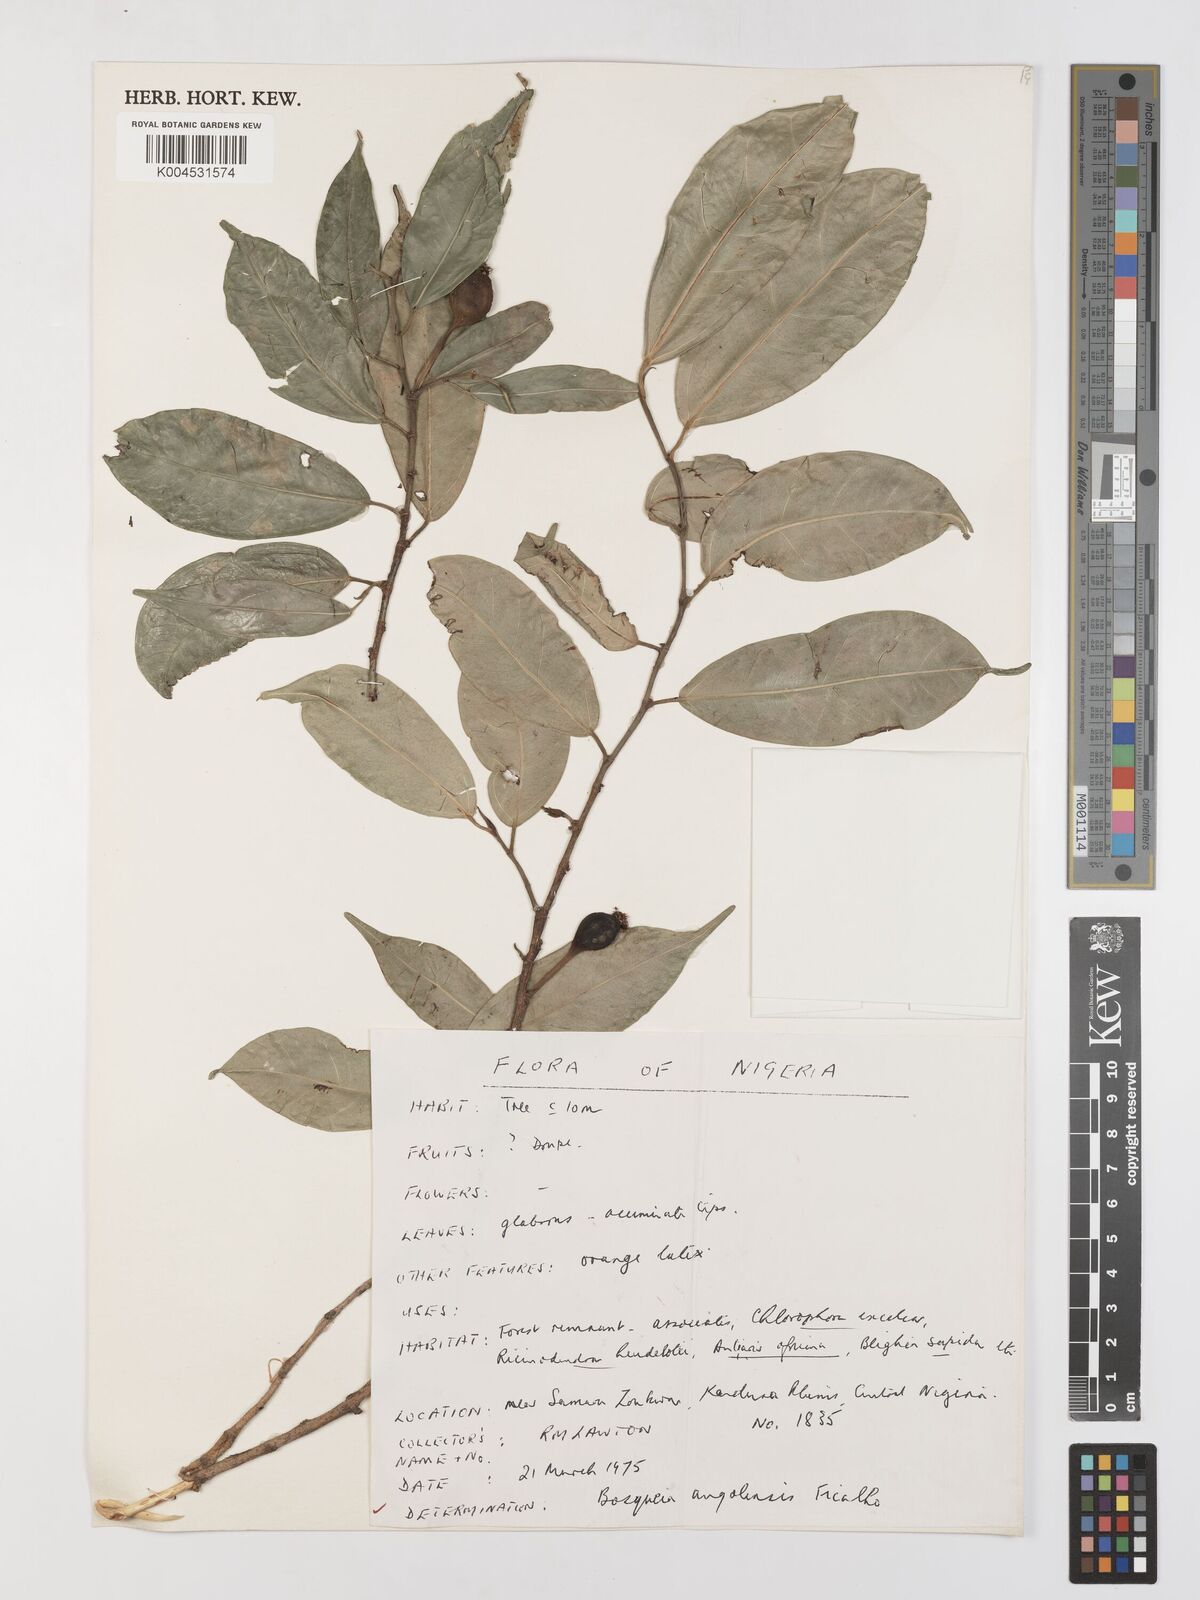 HERB. HORT. KEW.
ROYAL BOTANIC GARDENS KEW
K004531574
FLORA OF NIGERIA
HABIT: Tree c 10m
FRUITS: ? Drupe.
FLOWERS: –
LEAVES: glabrous - acuminate tips.
OTHER FEATURES: orange latex
USES:
HABITAT: Forest remnant - associates, Chlorophora excelsa,
Ricinodendron heudelotii, Antiaris africana, Blighia sapida etc.
LOCATION: near Samaru Zonkwa, Kaduna Plains, Central Nigeria.
COLLECTOR'S NAME + No. : RM LAWTON No. 1835
DATE : 21 March 1975
DETERMINATION. Bosqueia angolensis Ficalho
inches
Density
Don Williams
M001114
centimeters
Kew
Royal Botanic Gardens
0 1 2 3 4 5 6 7 8 9 10
cm
copyright reserved